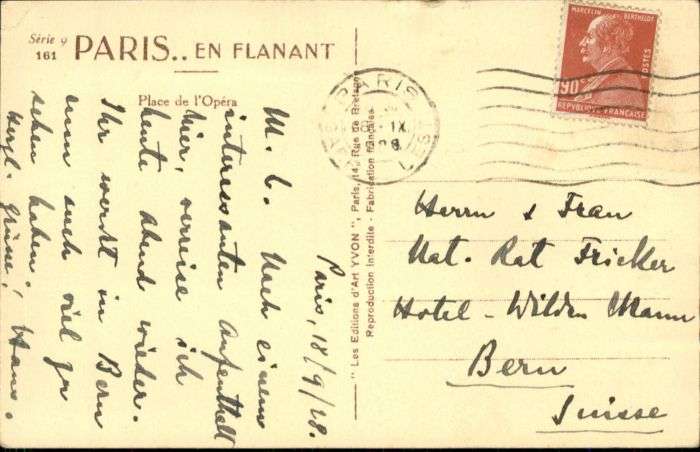 Série 9
161
PARIS.. EN FLANANT
Place de l'Opéra
Paris, 18/9/28.
M. L. Nach einem
interessanten Aufenthalt
hier, verreise ich
heute Abend wieder.
Ihr werdet in Bern
nun auch viel zu
sehen haben.
Herzl. Grüsse, Hans.
" Les Editions d'Art YVON ", Paris, 14, Rue de Bretagne
Reproduction Interdite - Fabrication française
PARIS
IX
28
MARCELIN BERTHELOT
POSTES
90c
REPVBLIQVE FRANÇAISE
Herrn & Frau
Nat. Rat Fricker
Hotel - Wilden Mann
Bern
Suisse